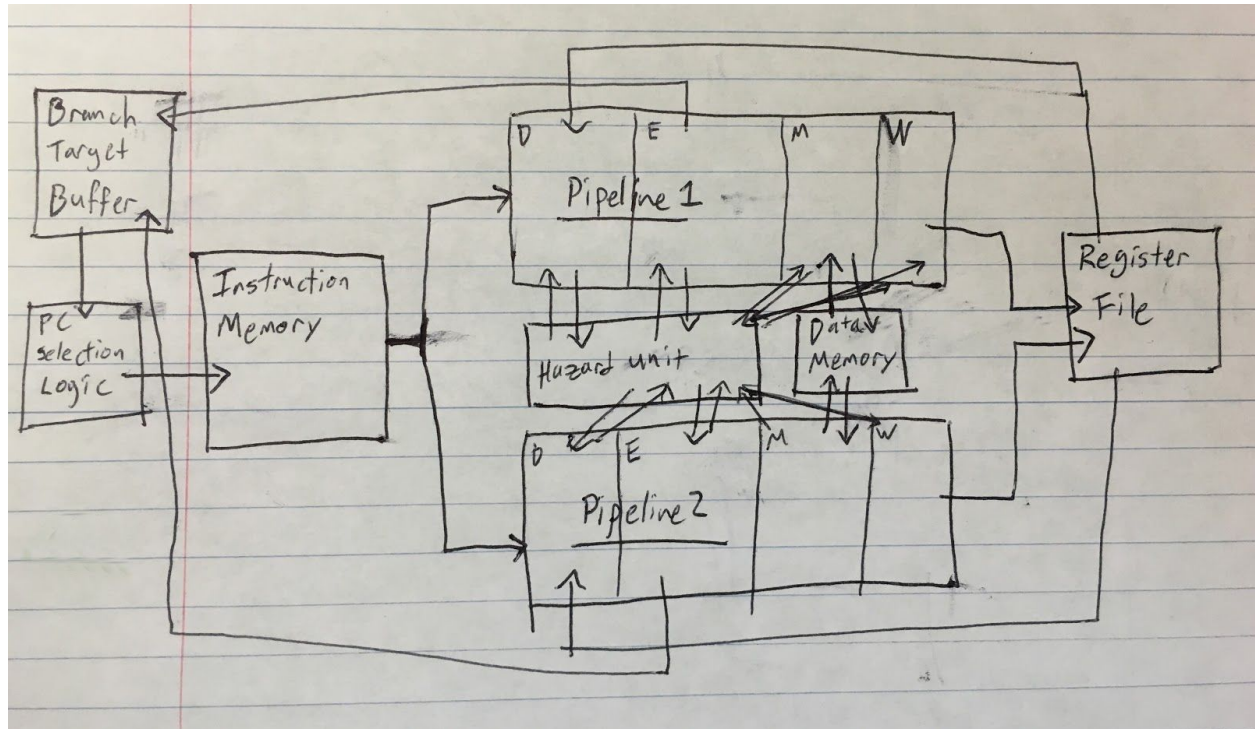 Branch
Target
Buffer
PC
Selection
Logic
Instruction
Memory
D E M W
Pipeline 1
Hazard unit
Data
Memory
D E M W
Pipeline 2
Register
File